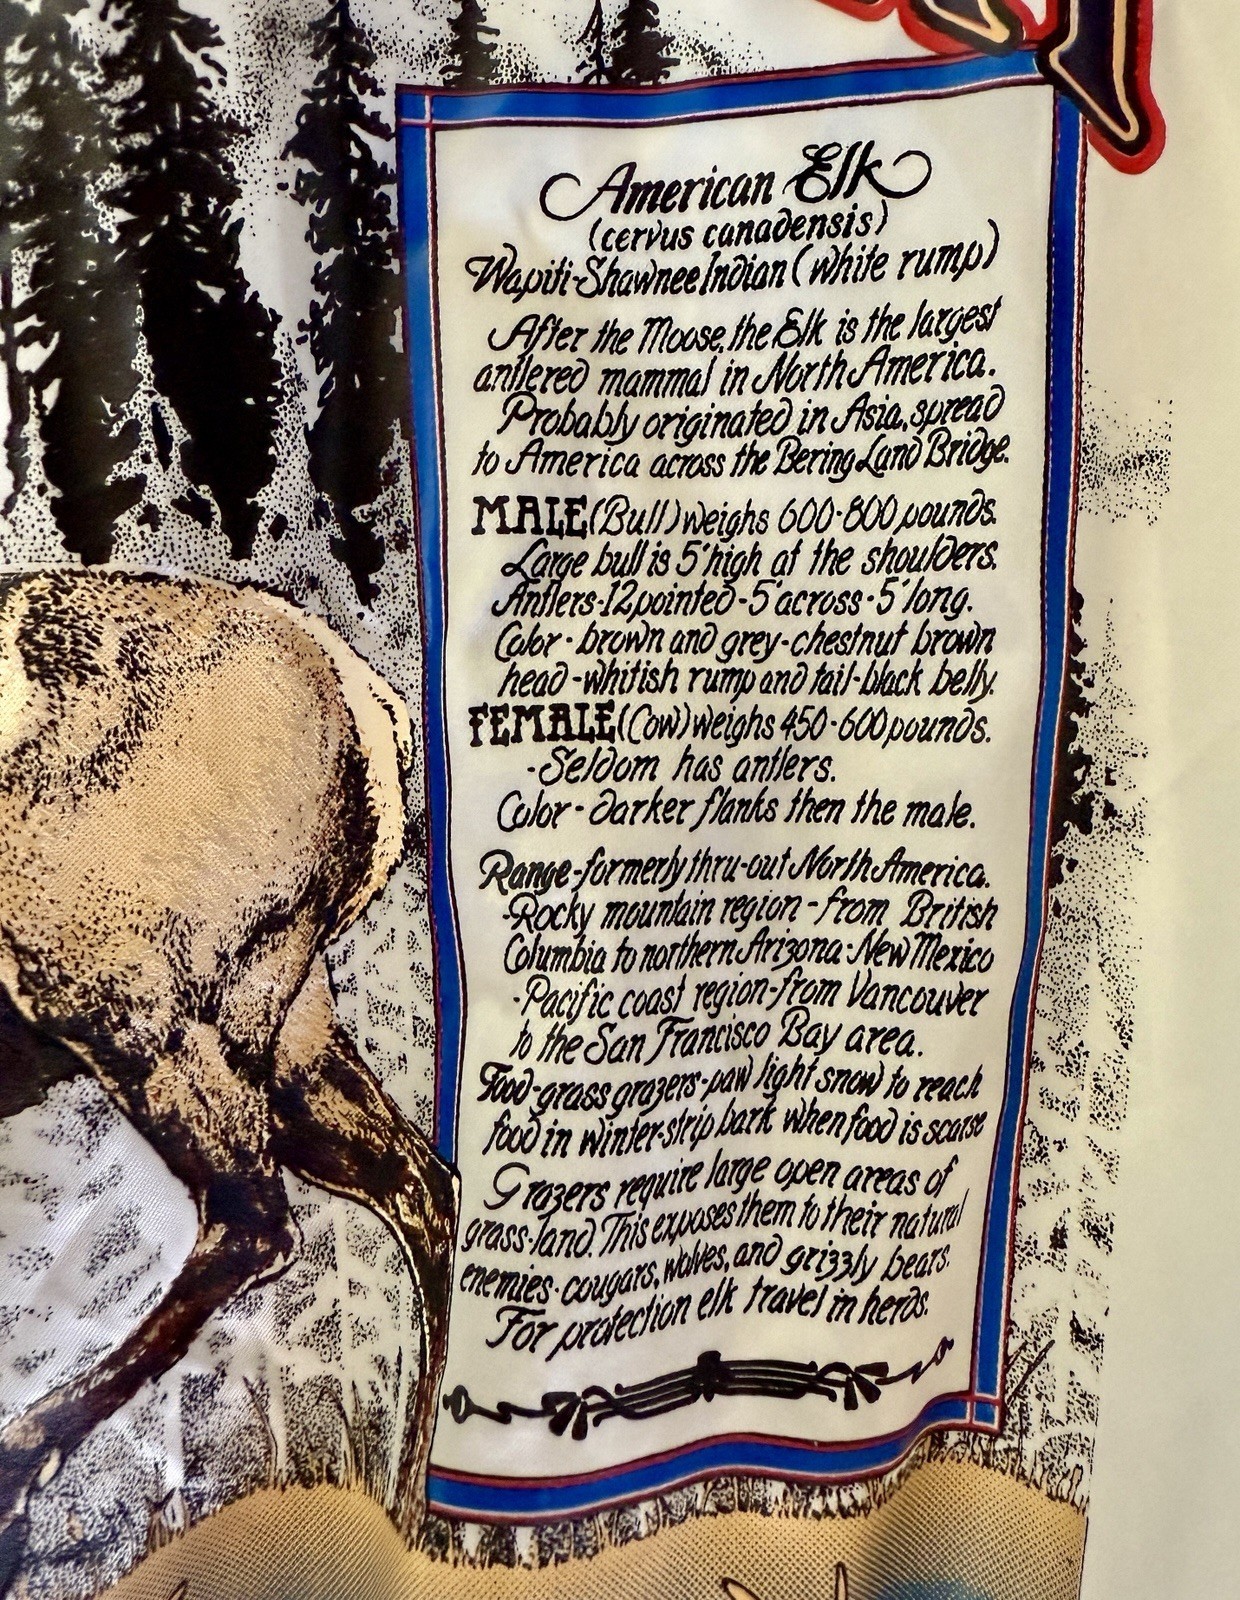 American Elk
(cervus canadensis)
Wapiti-Shawnee Indian (white rump)
After the Moose, the Elk is the largest
antlered mammal in North America.
Probably originated in Asia, spread
to America across the Bering Land Bridge.
MALE (Bull) weighs 600-800 pounds.
Large bull is 5' high at the shoulders.
Antlers-12 pointed-5' across-5' long.
Color-brown and grey-chestnut brown
head-whitish rump and tail-black belly.
FEMALE (Cow) weighs 450-600 pounds.
-Seldom has antlers.
Color-darker flanks then the male.
Range-formerly thru-out North America.
-Rocky mountain region-from British
Columbia to northern Arizona-New Mexico
-Pacific coast region-from Vancouver
to the San Francisco Bay area.
Food-grass grazers-paw light snow to reach
food in winter-strip bark when food is scarse
Grazers require large open areas of
grass-land. This exposes them to their natural
enemies-cougars, wolves, and grizzly bears.
For protection elk travel in herds.